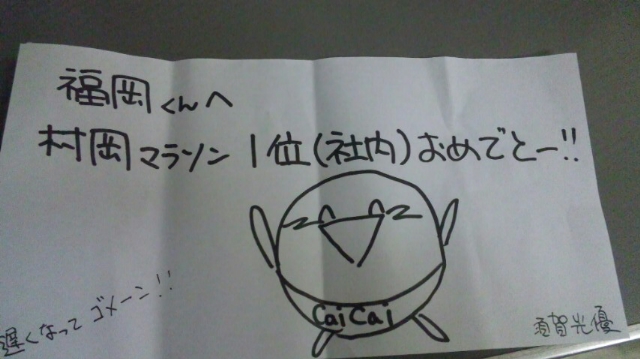 福岡くんへ
村岡マラソン1位(社内)おめでとー!!
CaiCai
遅くなってゴメーン!!
須賀光優